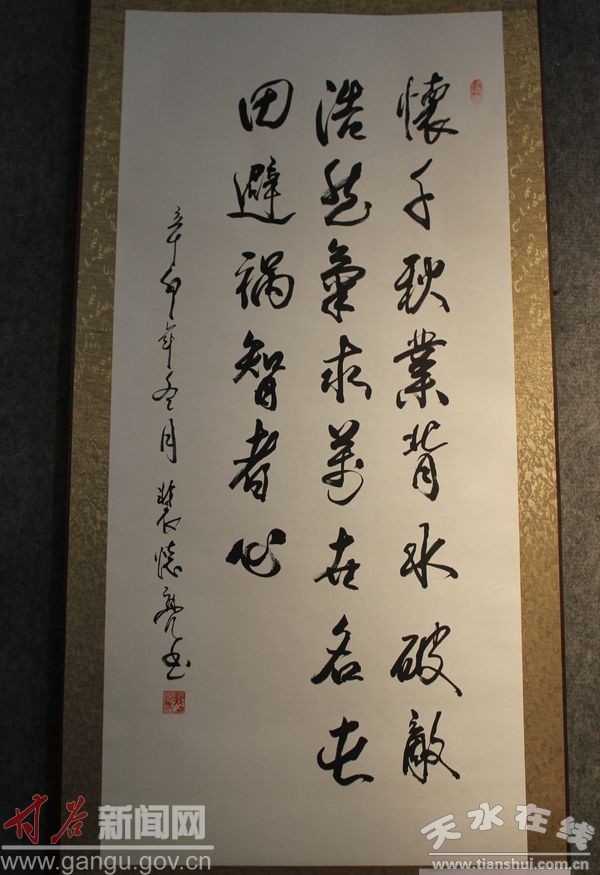 懷千秋業背水破敵
浩然氣求萬世名屯
田避禍智者心
辛卯年冬月 亮书
甘谷新闻网
www.gangu.gov.cn
天水在线
www.tianshui.com.cn